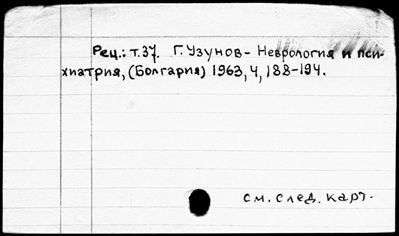 Рец.: т.37. Г. Узунов - Неврология и пси-
хиатрия, (Болгария) 1963, 4, 188-194.
см. след. карт.